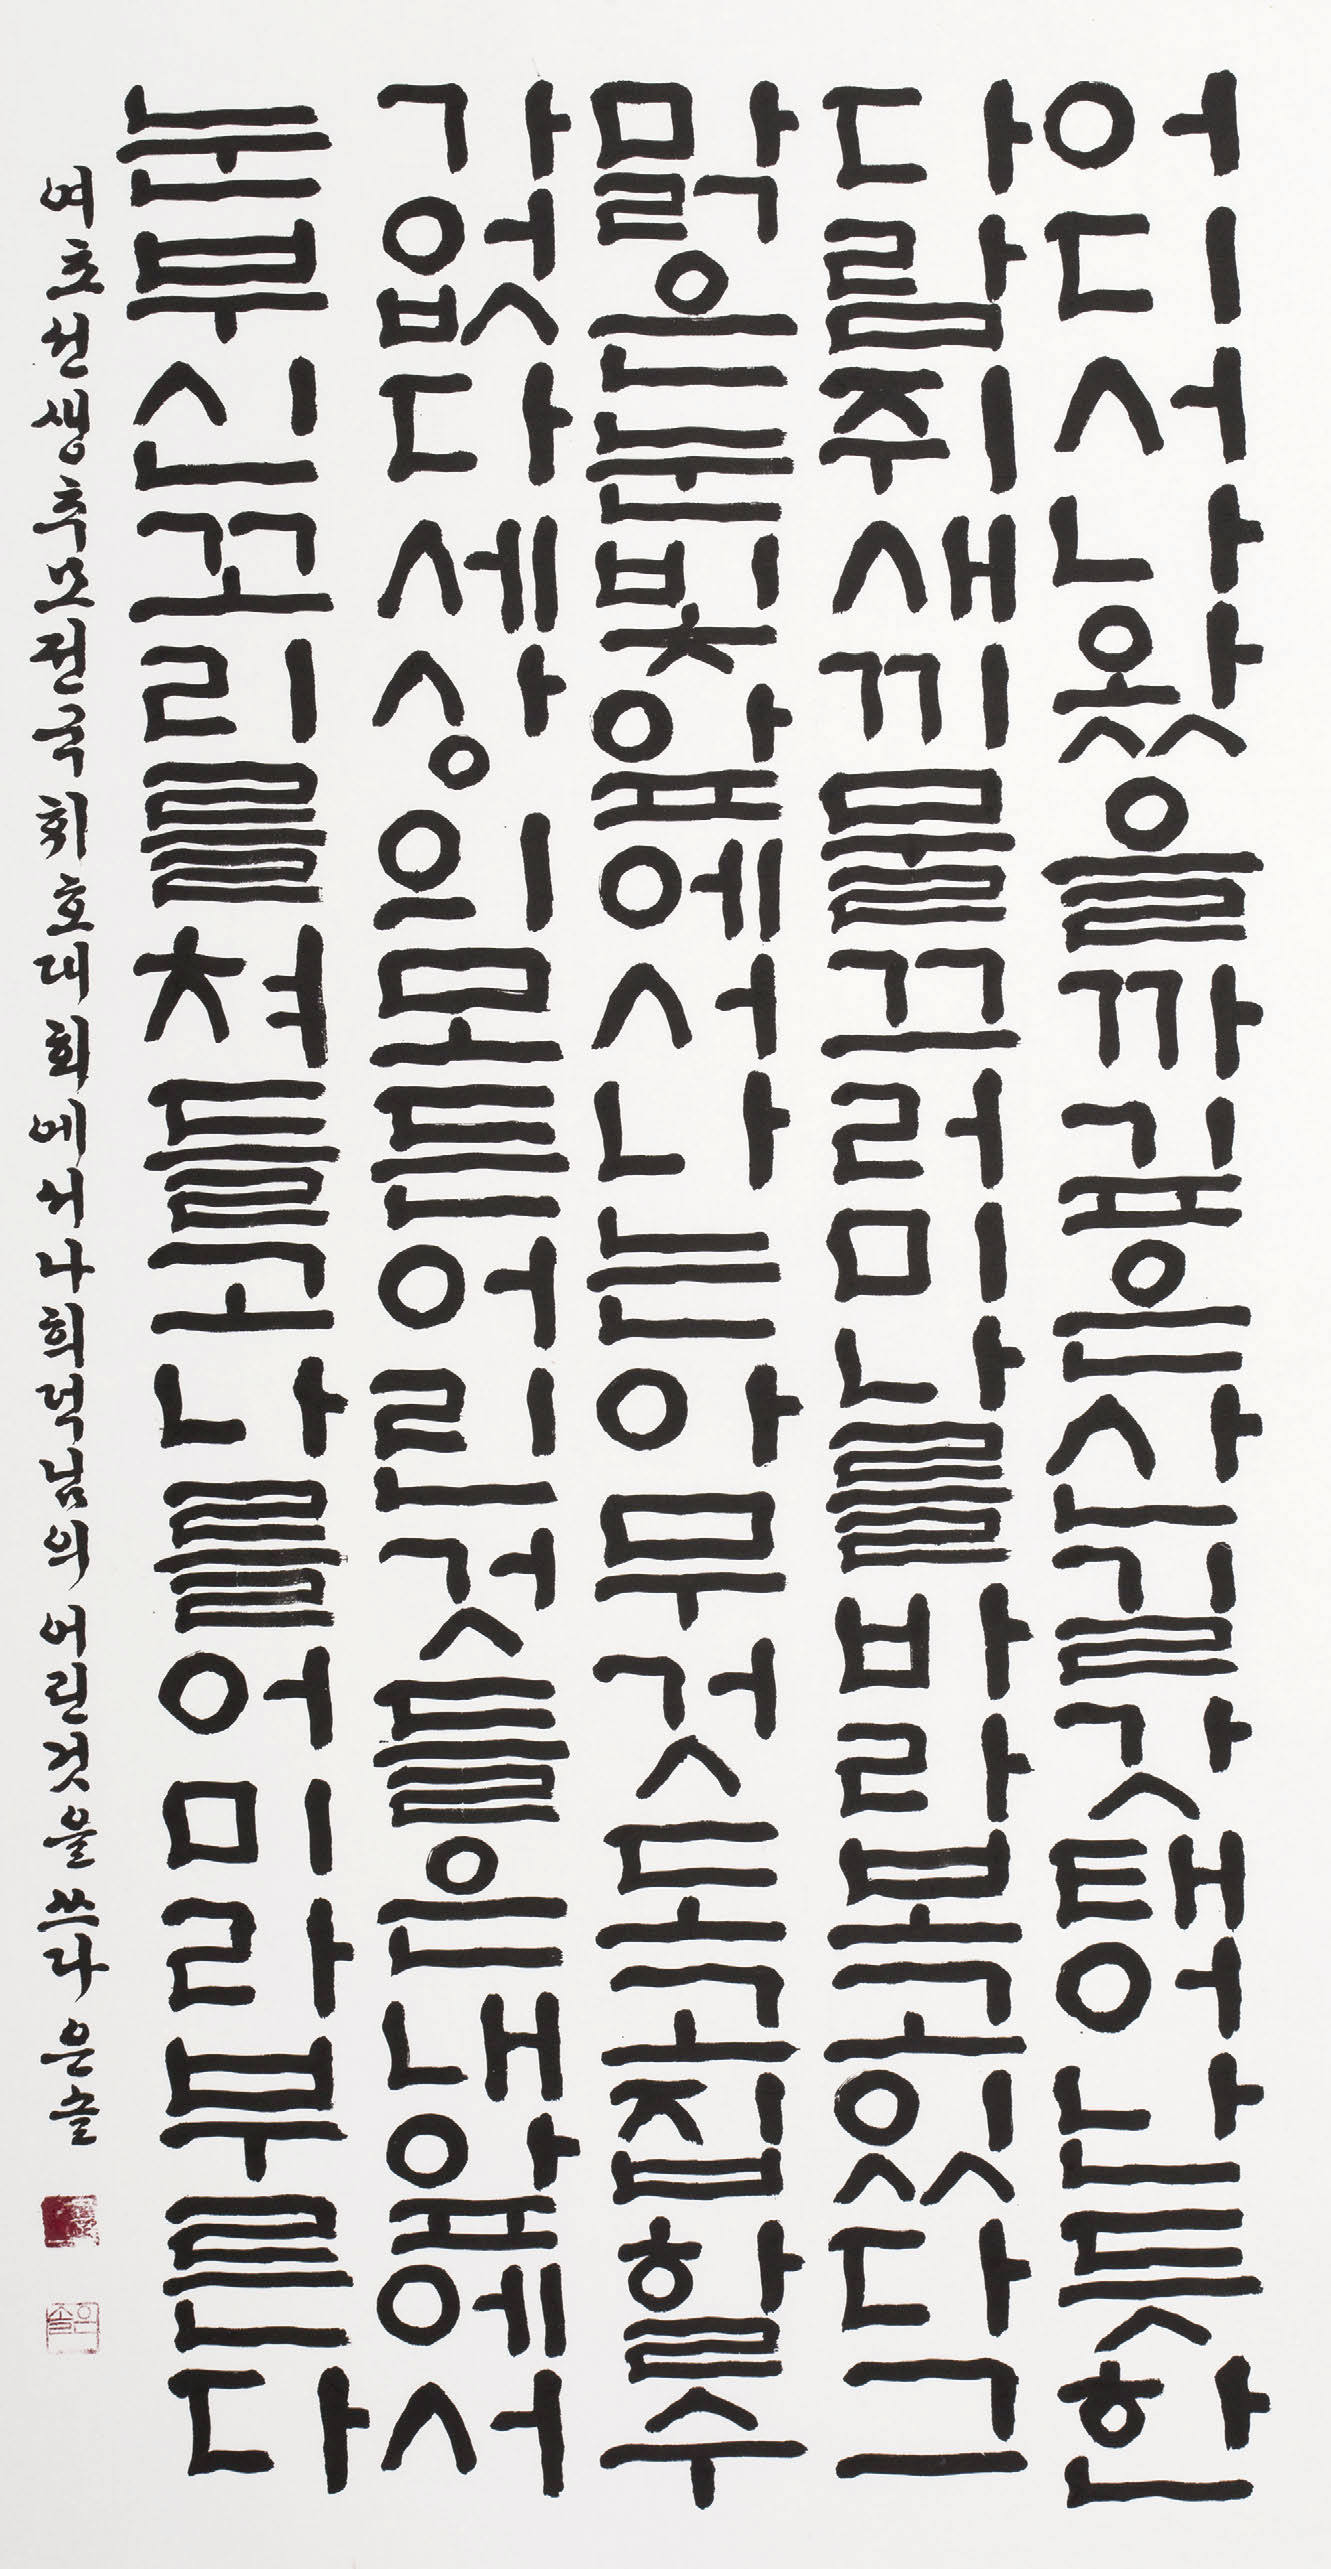 어디서나왔을까깊은산길갓태어난듯한
다람쥐새끼물끄러미날를바라보고있다그
맑은눈빛앞에서나는아무것도고집할수
가없다세상의모든어린것들은내앞에서
눈부신꼬리를쳐들고나를어미라부른다
여초선생추모전국휘호대회에서나희덕님의어린것을쓰다 은솔